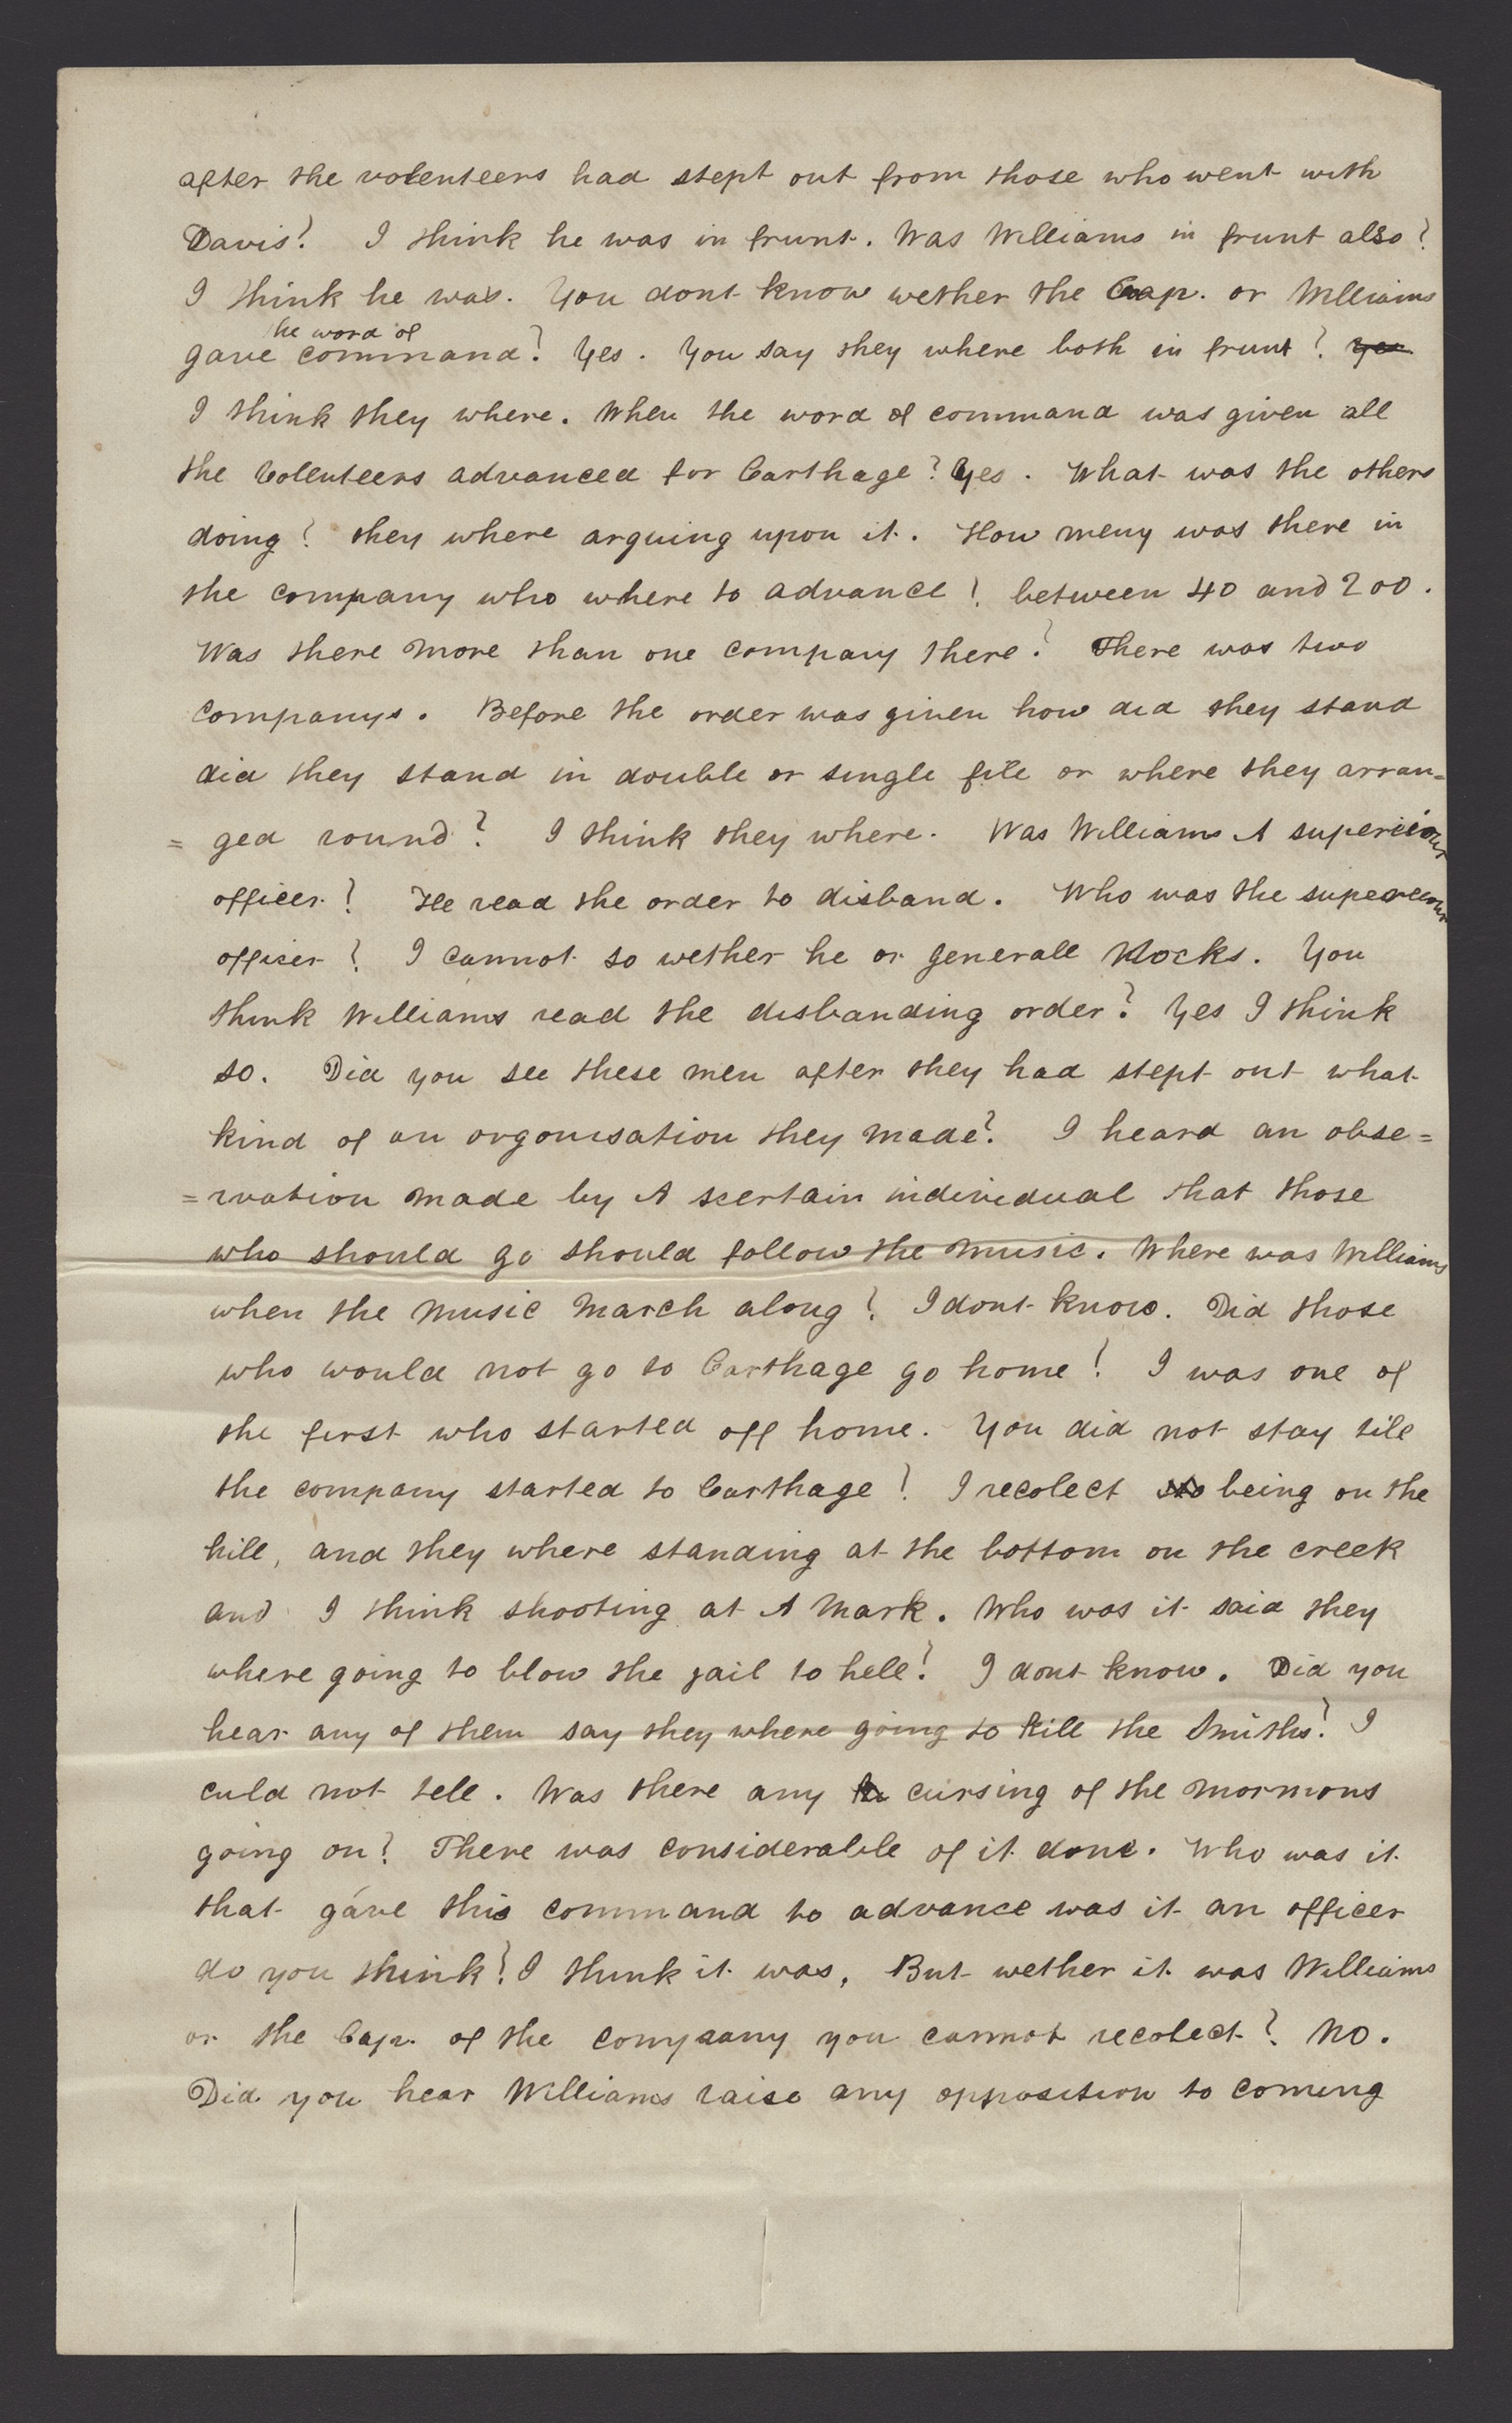 after the volenteers had stept out from those who went with
Davis? I think he was in frunt. Was Williams in frunt also?
I think he was. You dont know wether the Cap. or Williams
he word of
gave command? Yes. You say they where both in frunt? Yes
I think they where. When the word of command was given all
the Volenteers advanced for Carthage? Yes. What was the others
doing? they where arguing upon it. How meny was there in
the company who where to advance? between 40 and 200.
Was there more than one company there? There was two
companys. Before the order was given how did they stand
did they stand in double or single file or where they arran=
= ged round? I think they where. Was Williams A superiour
officer? He read the order to disband. Who was the
officer? I cannot so wether he or generall Knocks. You
think Williams read the disbanding order? Yes I think
so. Did you see these men after they had stept out what
kind of an orgonisation they made? I heard an obse=
= rvation made by A scertain individual that those
who should go should follow the music. Where was Williams
when the music march along? I dont know. Did those
who would not go to Carthage go home? I was one of
the first who started off home. You did not stay till
the company started to Carthage? I recolect being on the
hill, and they where standing at the bottom on the creek
and I think shooting at A mark. Who was it said they
where going to blow the jail to hell? I dont know. Did you
hear any of them say they where going to kill the Smiths? I
culd not tell. Was there any cursing of the mormons
going on? There was considerable of it done. Who was it
that gave this command to advance was it an officer
do you think? I think it was, But wether it was Williams
or the Cap. of the company you cannot recolect? No.
Did you hear Williams raise any opposition to coming